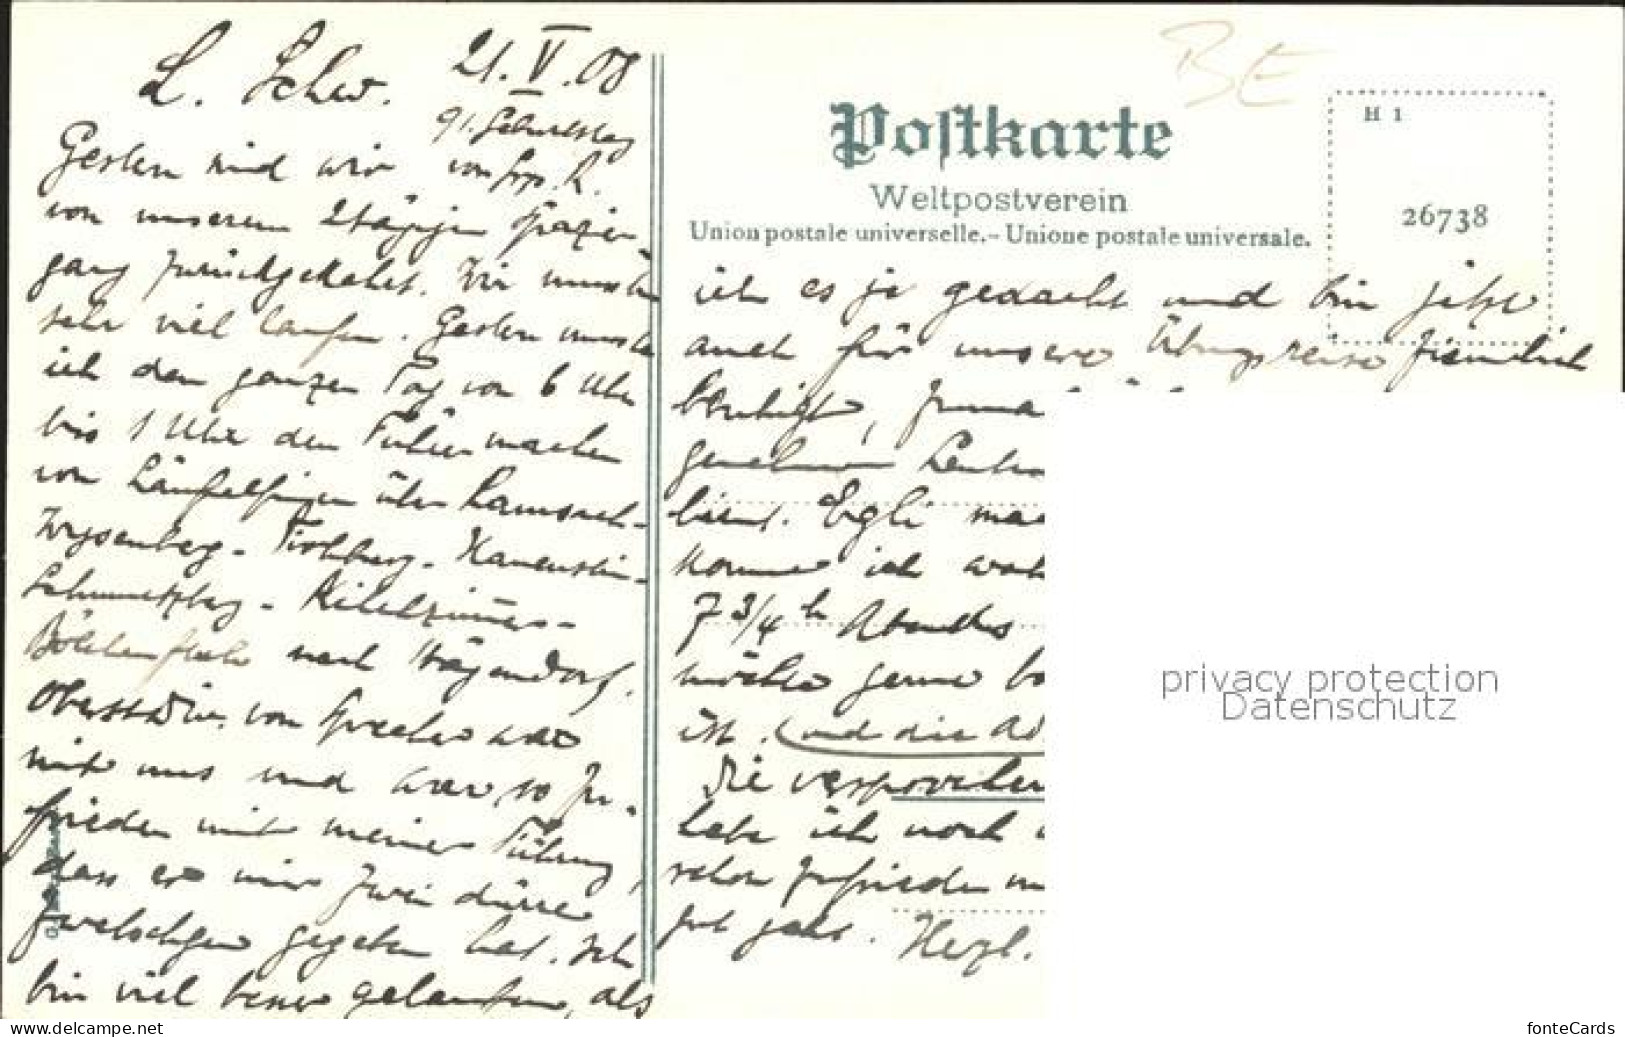 L. Schw. 21. V. 08
91. Geburtstag
Gestern sind wir von
von unserem 2tägigen Spazier-
gang zurückgekehrt. Wir mussten
sehr viel laufen. Gestern musste
ich den ganzen Tag von 6 Uhr
bis 1 Uhr den Führer machen
von Läufelfingen über Ramsach-
Wysenberg - Frohburg - Hauenstein-
Schmutzberg - Kilchzimmer-
Bölchenfluh nach Hägendorf.
Oberstdiv. von Sprecher war
mit uns und war so zu-
frieden mit meiner Führung,
dass er mir zwei dürre
Zwetschgen gegeben hat. Ich
bin viel besser gelaufen, als
Postkarte
Weltpostverein
Union postale universelle.- Unione postale universale.
H 1
26738
BE
ich es je gedacht und bin jetzt
auch für unsere Übungsreise ziemlich
beruhigt,
genehmen
Egli
komme ich
7 3/4 h Abends
möchte gerne
ist. (und die
Sie versprochen
habe ich noch
schon zufrieden
gut geht. Herzl.
privacy protection
Datenschutz
www.delcampe.net
fonteCards